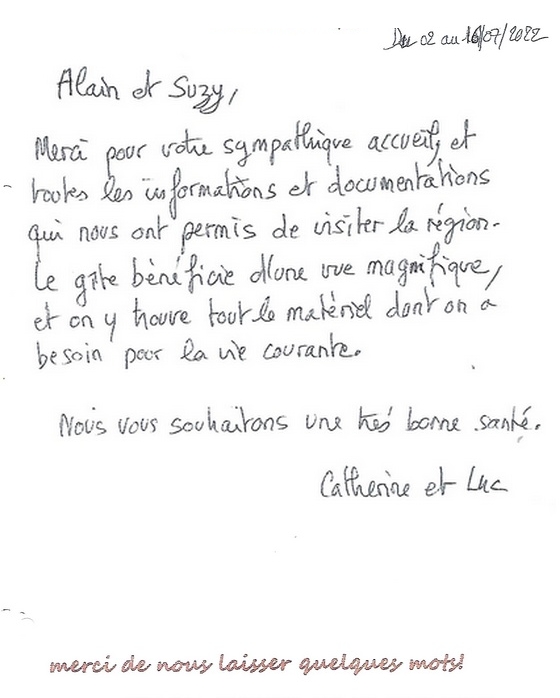 Du 02 au 16/07/2022
Alain et Suzy,
Merci pour votre sympathique accueil, et
toutes les informations et documentations
qui nous ont permis de visiter la région.
Le gîte bénéficie d'une vue magnifique,
et on y trouve tout le matériel dont on a
besoin pour la vie courante.
Nous vous souhaitons une très bonne santé.
Catherine et Luc
merci de nous laisser quelques mots!